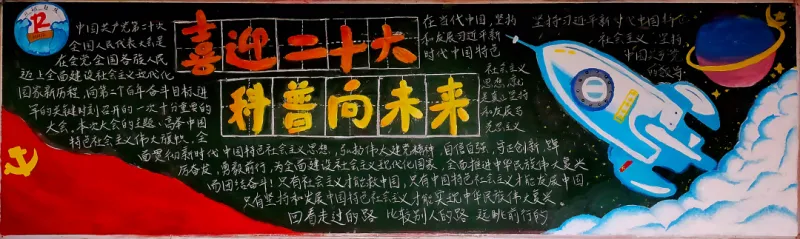 喜迎二十大
科普向未来
中国共产党第二十次
全国人民代表大会是
在全党全国各族人民
迈上全面建设社会主义现代化
国家新征程,向第二个百年奋斗目标进
军的关键时刻召开的一次十分重要的
大会,本次大会的主题:高举中国
特色社会主义伟大旗帜,全
面贯彻新时代中国特色社会主义思想,弘扬伟大建党精神,自信自强、守正创新,踔
厉奋发,勇毅前行,为全面建设社会主义现代化国家、全面推进中华民族伟大复兴
而团结奋斗!只有社会主义才能救中国,只有中国特色社会主义才能发展中国,
只有坚持和发展中国特色社会主义才能实现中华民族伟大复兴。
回看走过的路 比较别人的路 远眺前行的
在当代中国,坚持
和发展习近平新
时代中国特色
社会主义
思想,就
是真正坚持
和发展马
克思主义
坚持习近平新时代中国特色
社会主义,坚持